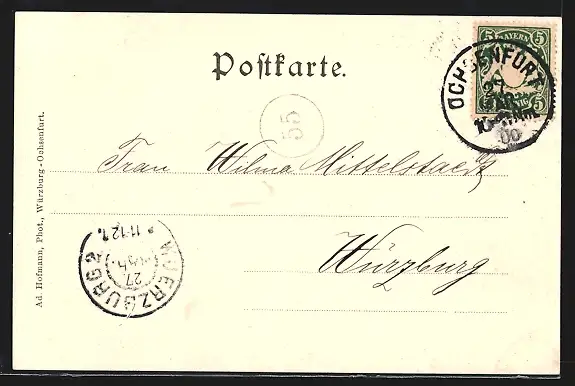 Postkarte.
BAYERN
5 5
5
OCHSENFURT
27
00
55
Frau Wilma Mittelstaedt
Würzburg
WUERZBURG 2
27
11-12
Ad. Hofmann, Phot., Würzburg-Ochsenfurt.